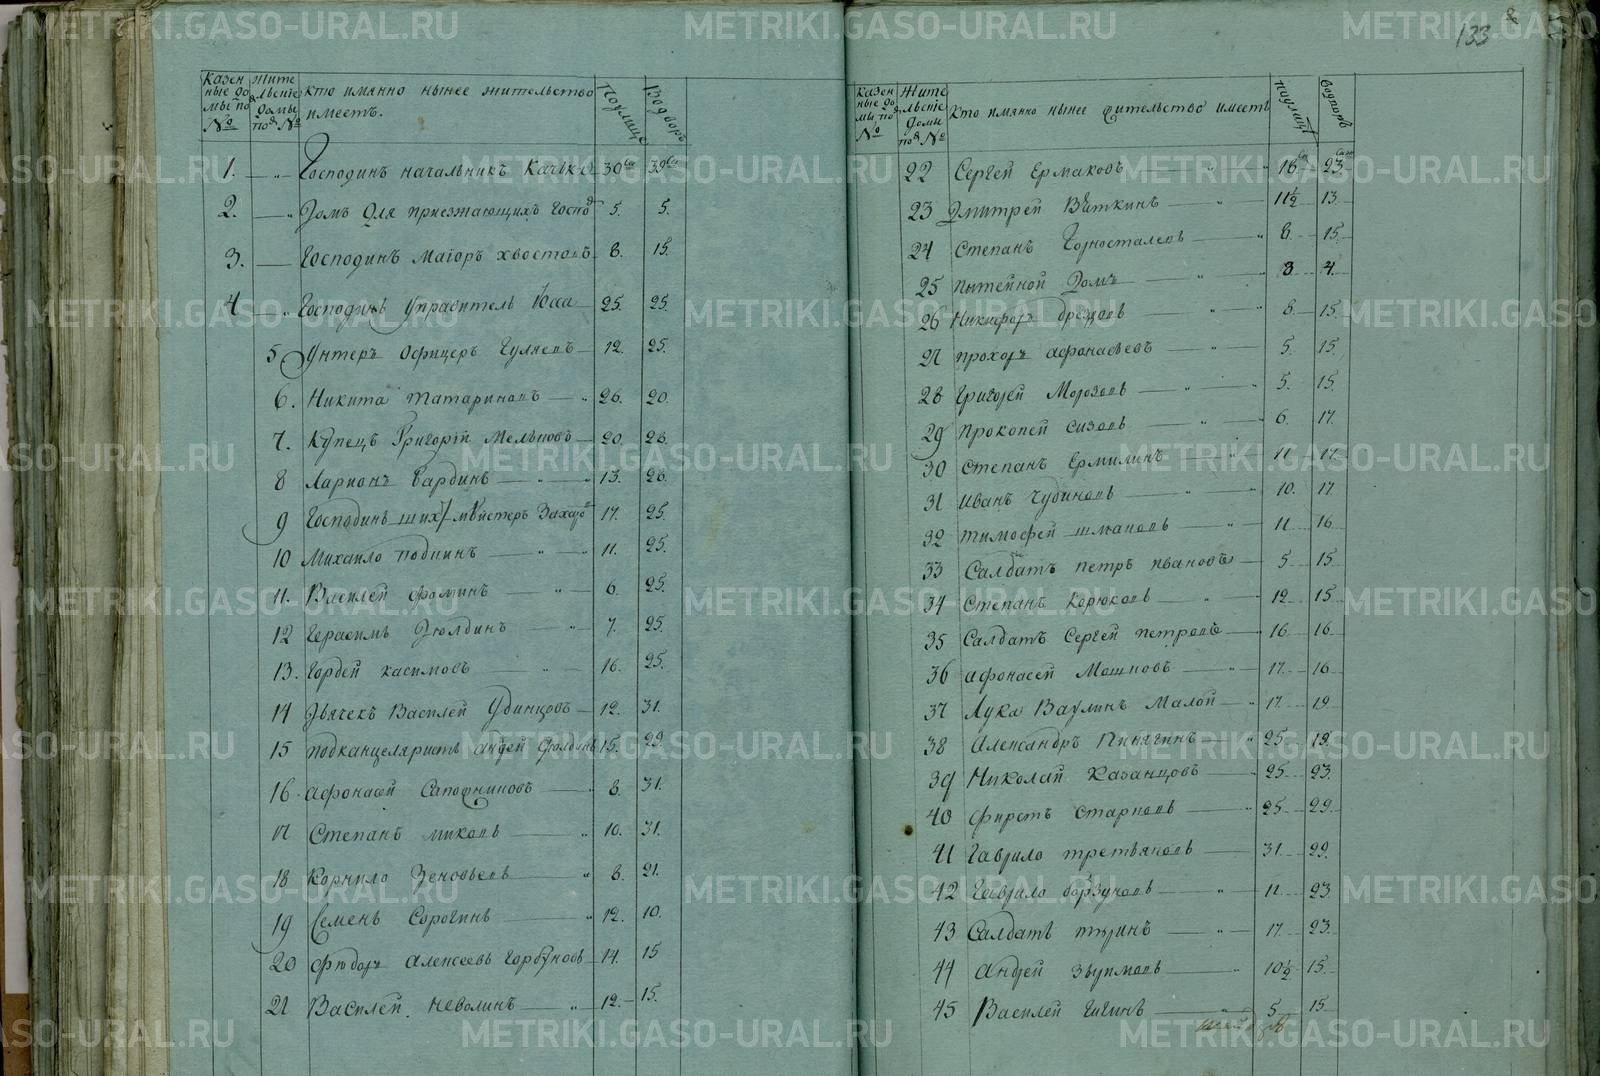 133
Казен
ные до
мы по
№
Жите
льские
домы
под №
Кто имянно нынее жительство
имеетъ.
По улице
Во дворъ
1. Господинъ начальникъ Качка 30 са 39 са
2. Домъ для приезжающихъ Госпо 5. 5.
3. Господинъ Маіоръ хвостовъ 8. 15.
4 Господинъ Управитель Юсса 25. 25.
5 Унтеръ Офицеръ Гуляевъ 12. 25.
6. Никита Татариновъ 26. 20.
7. Купецъ Григорій Мельновъ 20. 26.
8 Ларионъ Бардинъ 13. 26.
9 Господинъ шихтмейстеръ Захаро 17. 25.
10 Михаило 11. 25.
11. Василей Фоминъ 6. 25.
12 Герасимъ Дюлдинъ 7. 25.
13. Гордей касимовъ 16. 25.
14 Дьячекъ Василей Удинцовъ 12. 31.
15 подканцеляристъ Андрей 15. 29.
16 афонасей Сапожниковъ 8. 31.
17 Степанъ 10. 31.
18 Корнило Зеновьевъ 8. 21.
19 Семенъ Сорогинъ 12. 10.
20 Фюдоръ Алексеевъ Горбуновъ 14. 15
21 Василей Неволинъ 12. 15.
Казен
ные до
мы, по
№
Жите
льские
домы
под №
Кто имянно нынее жительство имеетъ
по улице
во дворъ
22 Сергей Ермаковъ 16 23.
23 Дмитрей Вяткинъ 11½ 13.
24 Степанъ Горносталевъ 8. 15.
25 Питейной Домъ 3 4.
26 Никифоръ 8. 15.
27 Прохоръ Афонасьевъ 5. 15.
28 Григорей Морозовъ 5. 15.
29 Прокопей Сизовъ 6. 17.
30 Степанъ Ермилинъ 11 17.
31 Иванъ Чудиновъ 10. 17.
32 Тимофей 11 16
33 Салдатъ петръ ивановъ 5 15
34 Степанъ Корюковъ 12 15
35 Салдатъ Сергей петровъ 16. 16.
36 афонасей Мошновъ 17. 16
37 Лука Ваулинъ Малой 17. 19.
38 Александръ Пинягинъ 25 19.
39 Николай Казанцовъ 25. 23.
40 Фирстъ Старковъ 25 29.
41 Гаврило третьяковъ 31. 29.
42 Гаврило борзуновъ 11 23
43 Салдатъ 17. 23.
44 Андрей 10½ 15.
45 Василей Гигинъ 5 15